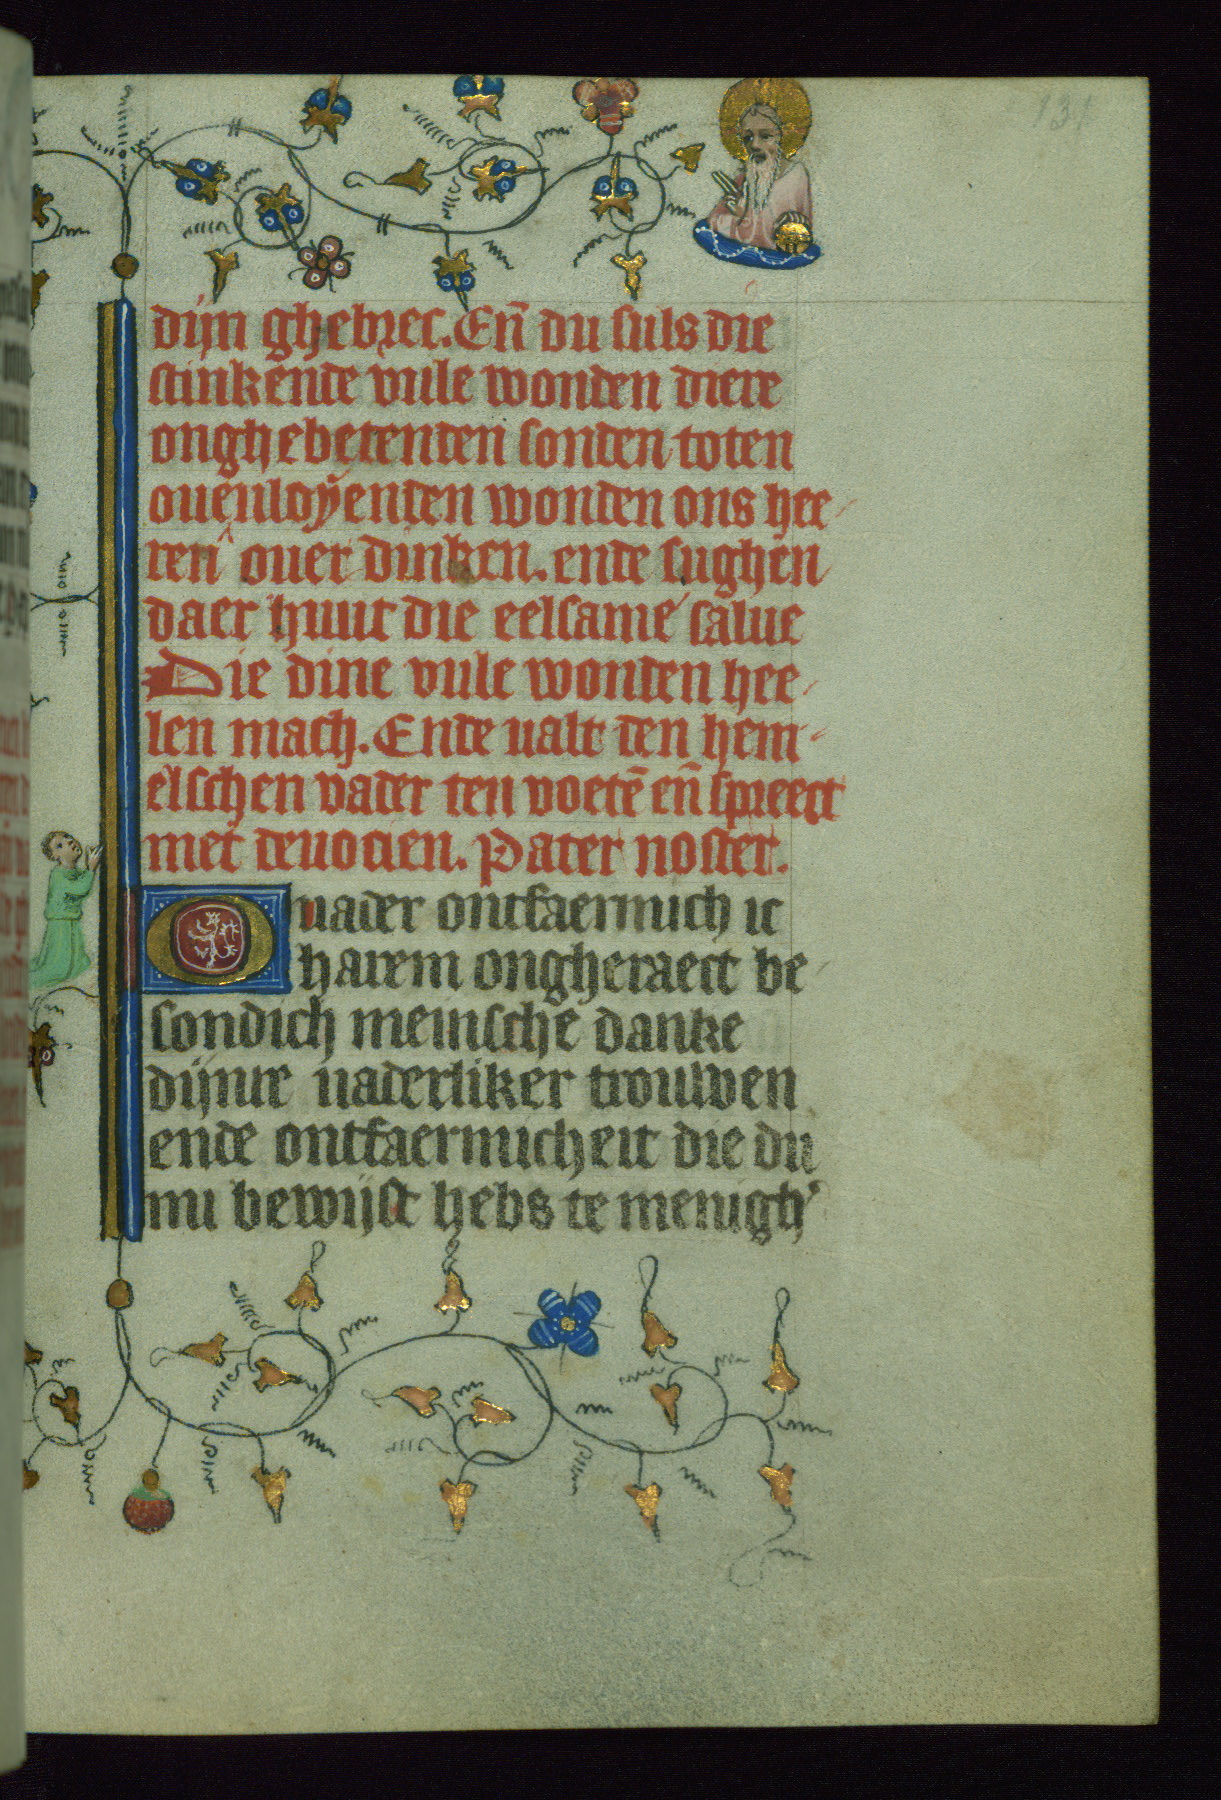 131
dijn ghebrec. En̄ du suls die
stinkende vule wonden diere
onghebetenden sonden toten
ouervloyenden wonden ons hee
ren ouer dinken. ende sughen
daer huut die eelsame salue
Die dine vule wonden hee
len mach. Ende ualt den hem
elschen vader ten voetē en̄ spreect
met deuocien. Pater noster.
O uader ontfaermich ic
harem ongheraect be
sondich meinsche danke
dijnre uaderliker trouwen
ende ontfaermicheit die du
mi bewijst hebs te menigh